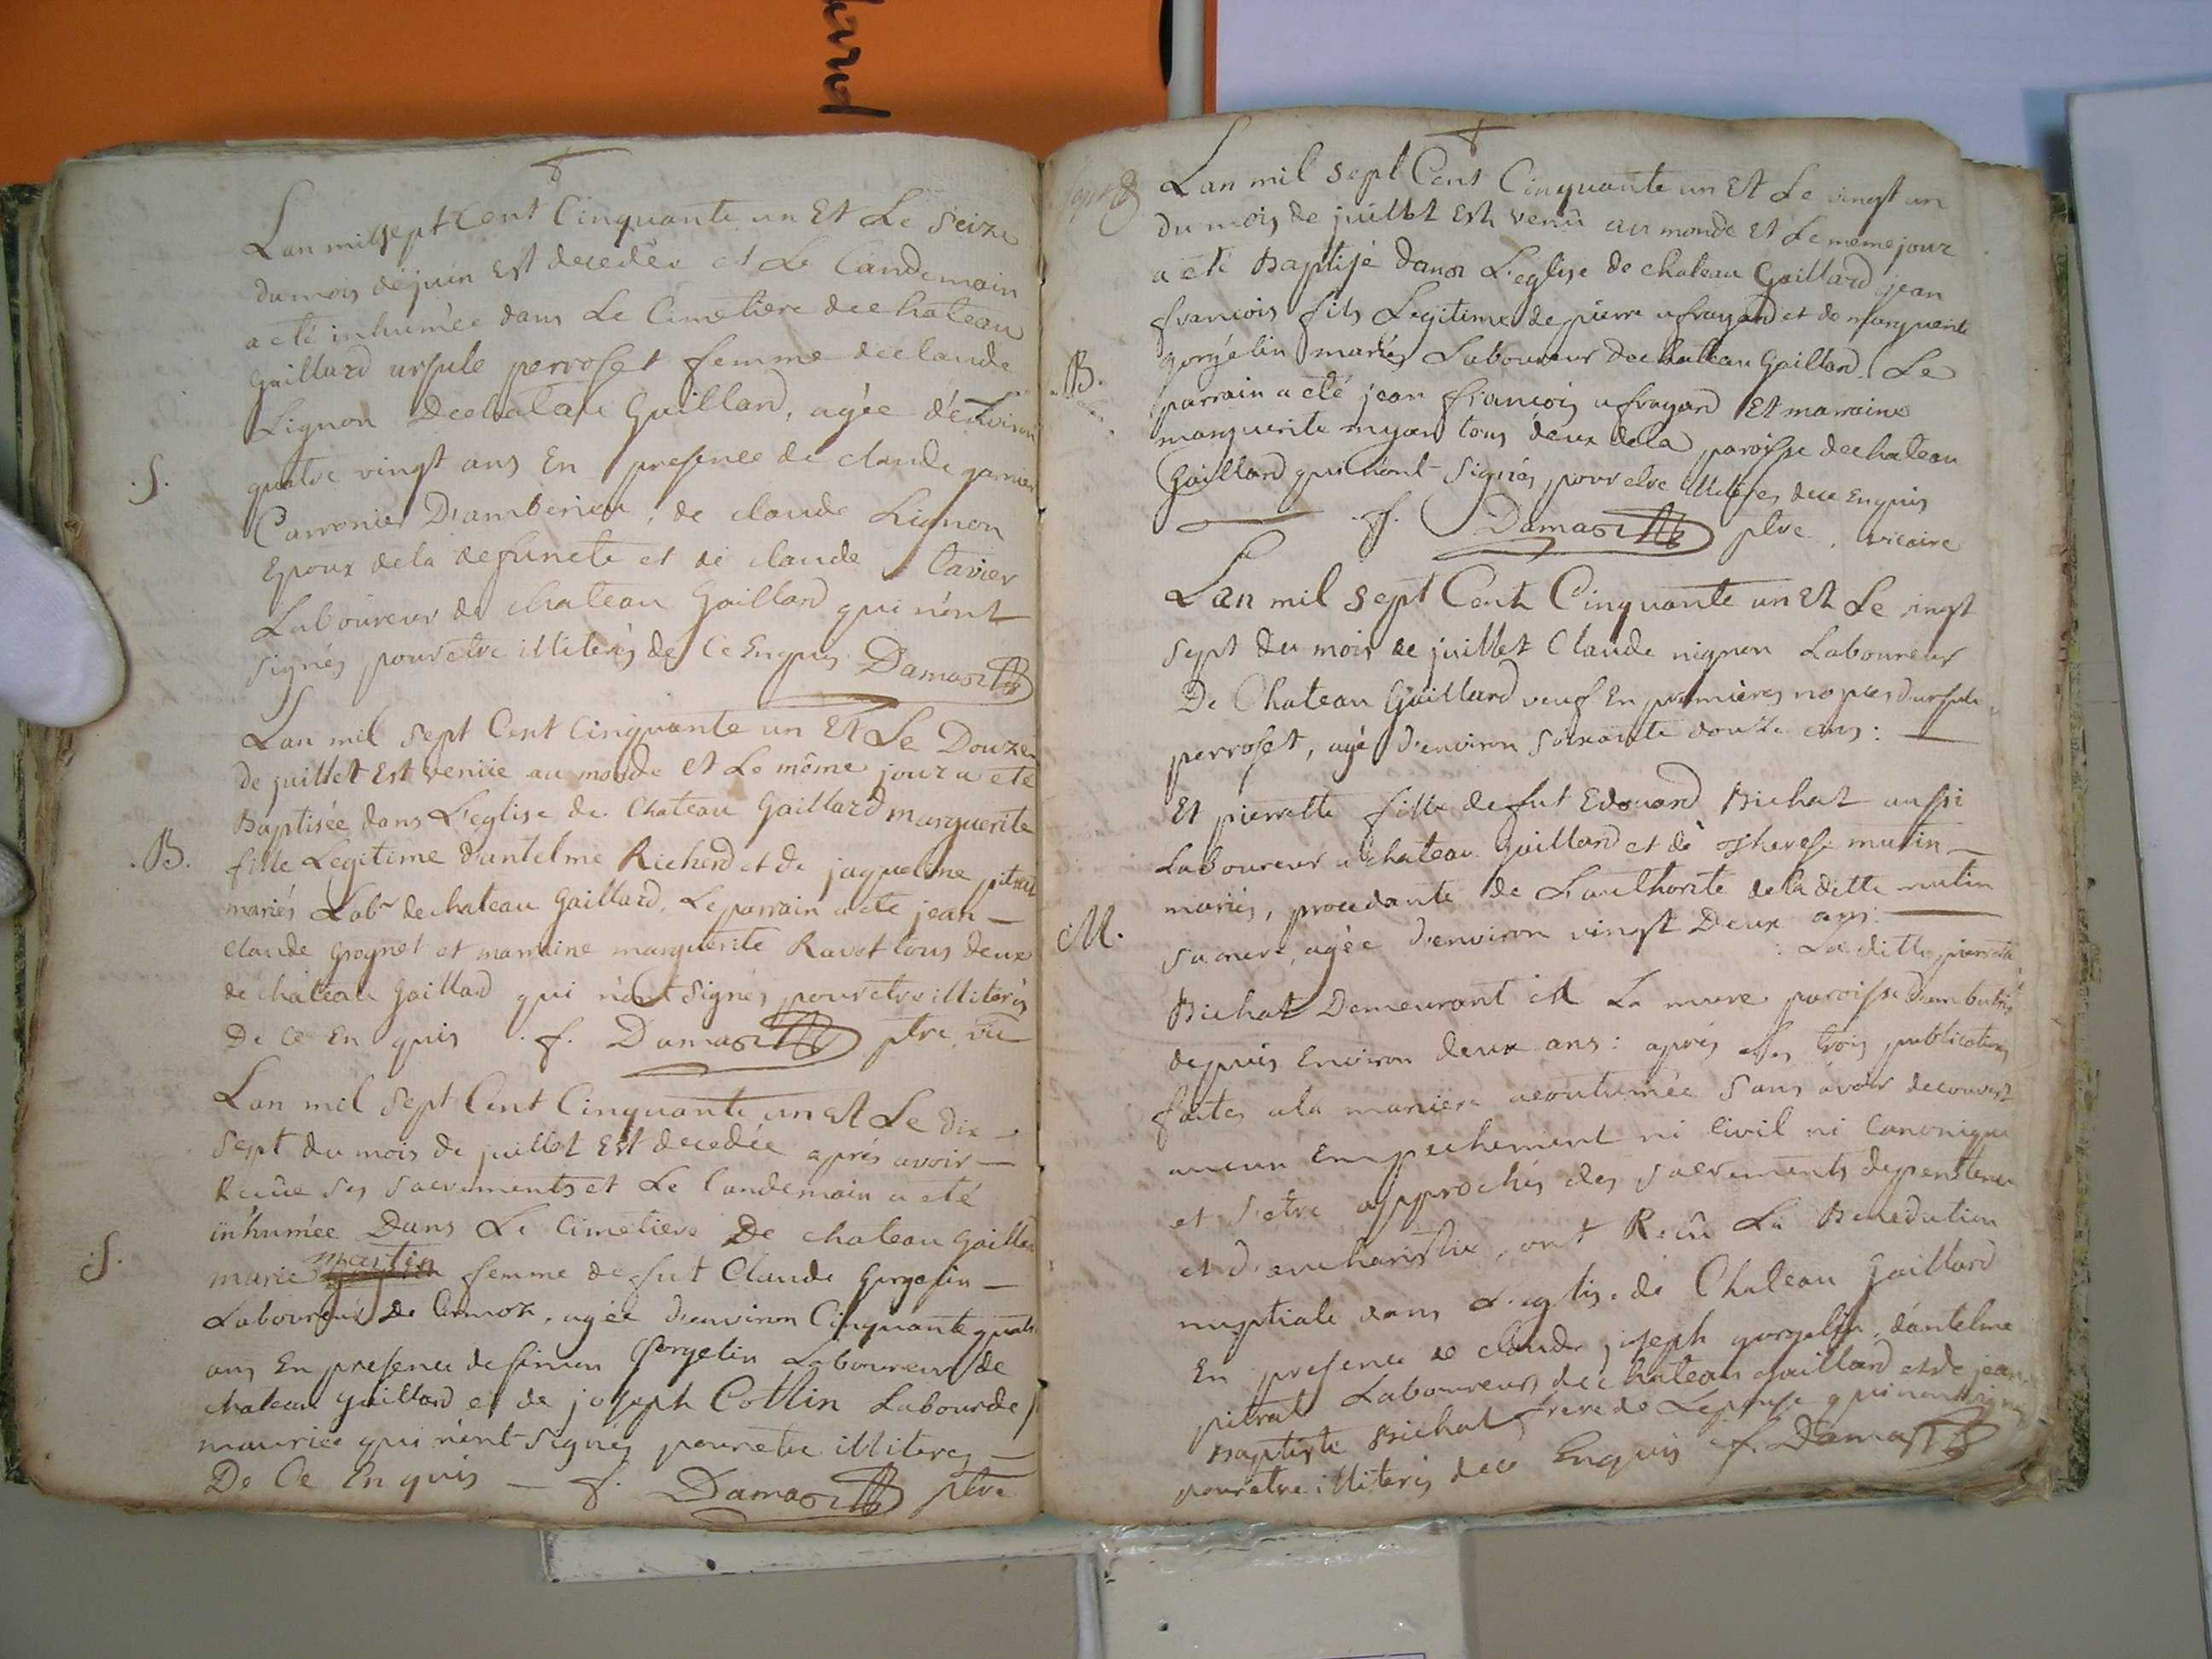 Lan mil sept Cent Cinquante un Et Le Seize
du mois de juin Est decedée et Le Landemain
a eté inhumée dans Le Cimetiere de chateau
Gaillard ursule perroset femme de claude
Lignon De chateau Gaillard, agée d'environ
.S.
quatre vingt ans En presence de claude garnier
D'amberieu, de claude Lignon
Epoux de la defuncte et de claude Tavier
Laboureur de chateau Gaillard qui n'ont
signés pour etre illiterés de Ce Enquis Damas
Lan mil Sept Cent Cinquante un Et Le Douze
de juillet Est venüe au monde et Le même jour a eté
Baptisée dans L'eglise de Chateau Gaillard marguerite
.B.
fille Legitime d'antelme Richerd et de jaqueline pitrat
mariés Labr de chateau Gaillard, Le parrain a eté jean
claude grognet et marraine marguerite Ravet tous deux
de chateau Gaillard qui n'ont signés pour etre illiterés
De Ce En quis . f. Damas ptre, vic
Lan mil Sept Cent Cinquante un Et Le dix
Sept du mois de juillet Est decedée aprés avoir
Recüe Ses Sacrements et Le Landemain a eté
inhumée Dans Le Cimetiere De chateau Gaillard
.S.
martin
marie femme de fut Claude Gorgelin
Laboureur de agée d'environ Cinquante quatre
ans En presence de simon Gorgelin Laboureur de
chateau Gaillard et de joseph Cottin Labour de
maurice qui n'ont signés pour etre illiterés
De Ce En quis f. Damas ptre
Lan mil Sept Cent Cinquante un Et Le vingt un
du mois de juillet Est venu au monde et Le meme jour
a eté Baptisé dans L'eglise de chateau Gaillard jean
francois fils Legitime de pierre ufrayard et de marguerite
gorgelin mariés Laboureur de chateau Gaillard. Le
.B.
parrain a eté jean francois ufrayard Et marraine
marguerite tous deux de la paroisse de chateau
Gaillard qui n'ont signés pour etre illiteres de ce Enquis
.f. Damas ptre, vicaire
Lan mil Sept Cent Cinquante un Et Le vingt
Sept du mois de juillet Claude nignon Laboureur
De Chateau Gaillard veuf En premières nopces d'ursule
perroset, agé d'environ soixante douze ans :
Et pierrette fille de fut Edouard Bichat aussi
Laboureur a chateau Gaillard et de Therese mutin
mariés, procedante de L'authorité de la ditte mutin
.M.
Sa mere, agée d'environ vingt Deux ans.
: La ditte pierrette
Bichat Demeurant a La mure paroisse d'ambutrix
depuis Environ deux ans : aprés Les trois publications
faites a la maniere acoutumée Sans avoir decouvert
aucun Empechement ni Civil ni Canonique
et S'etre approchés des Sacrements de penitence
et d'eucharistie, ont Recû La Benediction
nuptiale dans L'eglise de Chateau Gaillard
En presence de claude joseph gorgelin, d'antelme
pitrat Laboureurs de chateau Gaillard et de jean
Baptiste Bichat frere de Lepouse qui n'ont signés
pour etre illiterés de ce Enquis f. Damas